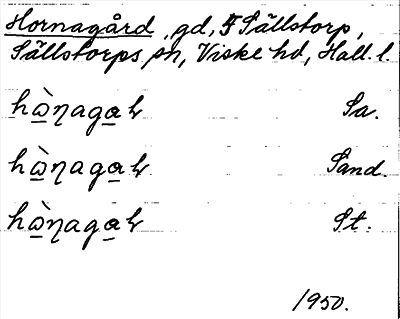 Hornagård, gd, F Sällstorp,
Sällstorps sn, Viske hd, Hall. l.
hὼ̲ŋaga̲ƙ Sa.
hὼ̲ŋaga̲ƙ Sand.
hὼ̲ŋaga̲ƙ St.
1950.